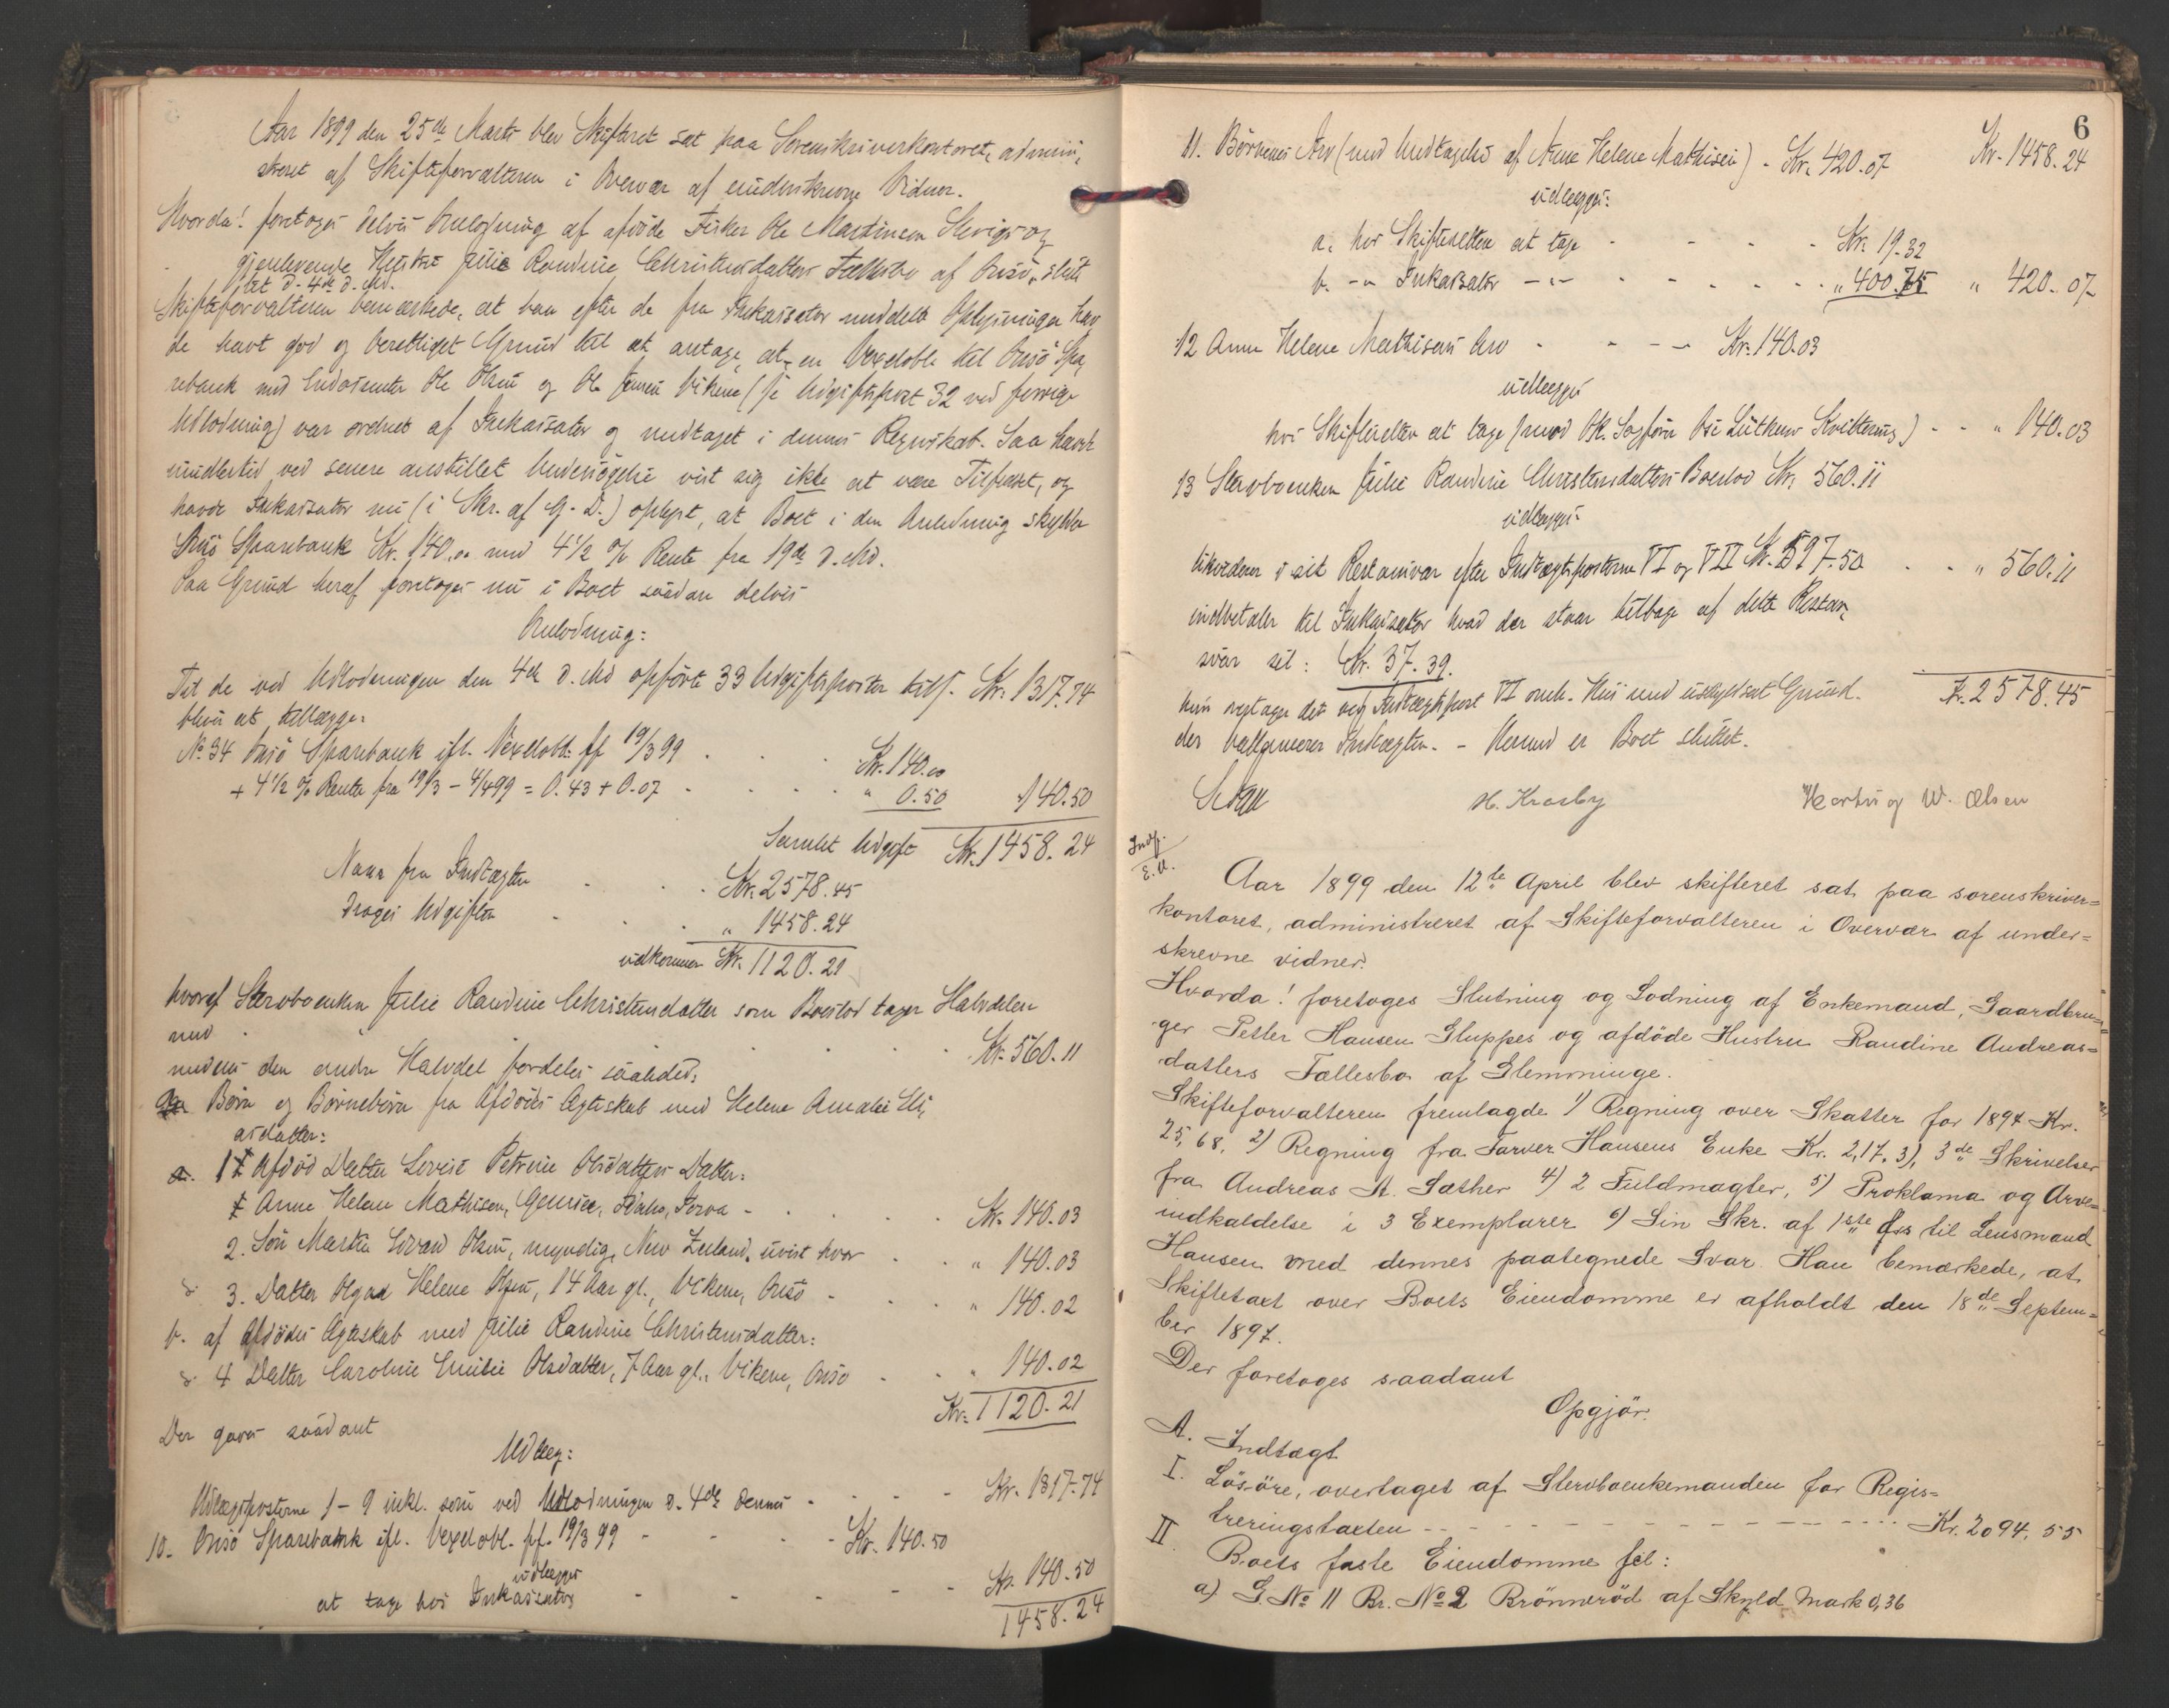 Aar 1899 den 25de Marts blev Skifteret sat paa Sorenskriverkontoret, admini,
streret af Skifteforvalteren i Overvær af underskrevne Vidner.
Hvorda! foretoges delvis Omlodning af afdöde Fisker Ole Martinsen og
gjenlevende Hustru Julie Randine Christensdatters Fællesbo af Onsö, slut
tet d. 4de d. Md.
Skifteforvalteren bemærkede, at han efter de fra Inkassator meddelte Oplysninger hav
de havt god og berettiget Grund til at antage, at en Vexelobl. til Onsö Spa,
rebank med Endossenter Ole Olsen og Ole Jensen Vikene (se Udgiftspost 32 ved forrige
Udlodning) var ordnet af Inkassator og medtaget i dennes Regnskab. Saa havde
imidlertid ved senere anstillet Undersögelse vist sig ikke at være Tilfældet, og
havde Inkassator nu (i Skr. af G. D.) oplyst, at Boet i den Anledning skylder
Onsö Sparebank Kr. 140.00 med 4 1/2 % Rente fra 19de d. Md.
Paa Grund heraf foretoges nu i Boet saadan delvis
Omlodning:
Til de ved Udlodningen den 4de d. Md opförte 33 Udgiftsposter tils. Kr. 1317.74
bliver at tillægge:
No 34 Onsö Sparebank ifl. Vexelobl. pf 19/3 99 Kr. 140.00
+ 4 1/2 % Rente fra 19/3 - 4/4 99 = 0.43 + 0.07 " 0.50 140.50
Samlet Udgift Kr. 1458.24
Naar fra Indtægten Kr. 2578.45
drages Udgiften " 1458.24
udkommer Kr. 1120.21
hvoraf Stervboenken Julie Randine Christensdatter som Boeslod tager Halvdelen
med Kr. 560.11
medens den anden Halvdel fordeles saaledes:
Börn og Börnebörn fra Afdödes Ægteskab med Helene Amalie
asdatter:
a. 1 Afdöd Datter Lovise Petrine Olsdatters Datter:
Anne Helene Mathisen, Kr. 140.03
2. Sön Martin Edvard Olsen, myndig, New Zeeland, uvist hvor " 140.03
3. Datter Olga Helene Olsen, 14 Aar gl., Vikene, Onsö " 140.02
b. af Afdödes Ægteskab med Julie Randine Christensdatter:
4 Datter Caroline Emilie Olsdatter, 7 Aar gl., Vikene, Onsö " 140.02
Kr. 1120.21
Der gaves saadant
Udlæg:
Udlægsposterne 1 - 9 inkl. som ved Udlodningen d. 4de dennes Kr. 1317.74
10. Onsö Sparebank ifl. Vexelobl. pf. 19/3 99 Kr. 140.50
udlægges
at tage hos Inkassator Kr. 140.50
1458.24
6
11. Börnenes Arv (med Undtagelse af Anne Helene Mathisen) Kr. 420.07 Kr. 1458.24
udlægges:
a. hos Skifteretten at tage Kr. 19.32
b. -"- Inkassator -"- " 400.75 " 420.07
12 Anne Helene Mathisens Arv Kr. 140.03
udlægges
hos Skifteretten at tage (mod Ok. Sagförer Lütkens Kvittering) " 140.03
13 Stervboenken Julie Randine Christensdatters Boeslod Kr. 560.11
udlægges
likvideres i sit Restansvar efter Indtægtsposterne VI og VII Kr. 597.50 " 560.11
indbetaler til Inkassator hvad der staar tilbage af dette Restan,
svar til: Kr. 37.39.
hun overtager det ved Indtægtspost VI omh. Hus med uskyldsat Grund. Kr. 2578.45
der ballancerer Indtægten. - Hermed er Boet sluttet.
H. Krosby Hartvig W. Olsen
Indf.
E. A.
Aar 1899 den 12te April blev skifteret sat paa sorenskriver=
kontoret, administreret af Skifteforvalteren i Overvær af under=
skrevne vidner.
Hvorda! foretoges Slutning og Lodning af Enkemand, Gaardbru=
ger Petter Hansen Gluppes og afdöde Hustru Randine Andreas=
datters Fællesbo af Glemminge.
Skifteforvalteren fremlagde 1) Regning over Skatter for 1897 Kr.
25,68, 2) Regning fra Farver Hansens Enke Kr. 2,17, 3), 3de Skrivelser
fra Andreas A. Sæther 4) 2 Fuldmagter, 5) Proklama og Arve=
indkaldelse i 3 Exemplarer 6) Sin Skr. af 1ste ds til Lensmand
Hansen med dennes paategnede Svar. Han bemærkede, at
Skiftetaxt over Boets Eiendomme er afholdt den 18de Septem=
ber 1897.
Der foretoges saadant
Opgjör:
A. Indtægt
I. Lösöre, overtaget af Stervboenkemanden for Regis=
treringstaxten Kr. 2094,55
II Boets faste Eiendomme fœl:
a) G. No 11 Br. No 2 Brönneröd af Skyld Mark 0,36